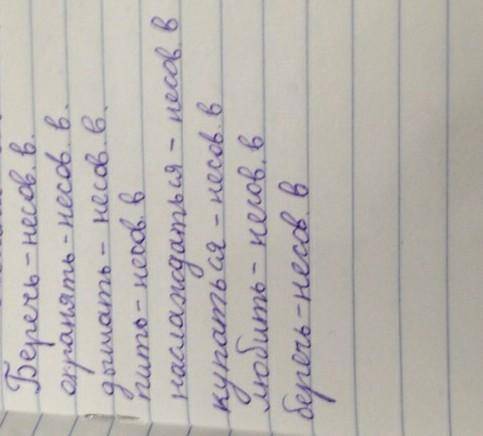 Беречь - несов. в.
охранять - несов. в.
дышать - несов. в.
пить - несов. в
наслаждаться - несов. в
купаться - несов. в
любить - несов. в
беречь - несов. в